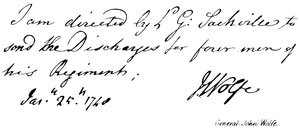 I am directed by Ld G: Sackville to
send the Discharges for four men of
his Regiment;
Jan. 25. 1748
J Wolfe
General John Wolfe